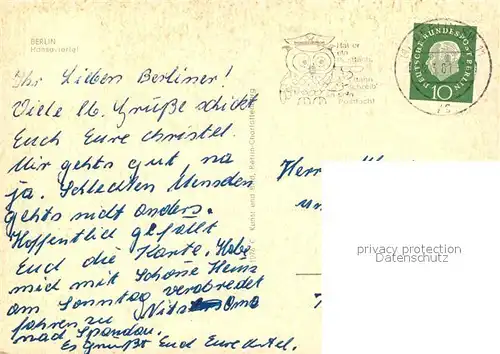 BERLIN
Hansaviertel
Ihr Lieben Berliner!
Viele lb. Grüße schickt
Euch Eure Christel.
Mir gehts gut, na
ja. Schlechten Menschen
gehts nicht anders.
Hoffentlich gefällt
Euch die Karte. Habe
mich mit Heinz
am Sonntag verabredet
fahren zu Oma
nach Spandau.
Es grüßt Euch Eure
Kunst und Bild, Berlin-Charlottenburg
Hat er
ein
Postfach,
dann
schreib'
Postfach!
DEUTSCHE BUNDESPOST BERLIN
10
Herrn
privacy protection
Datenschutz